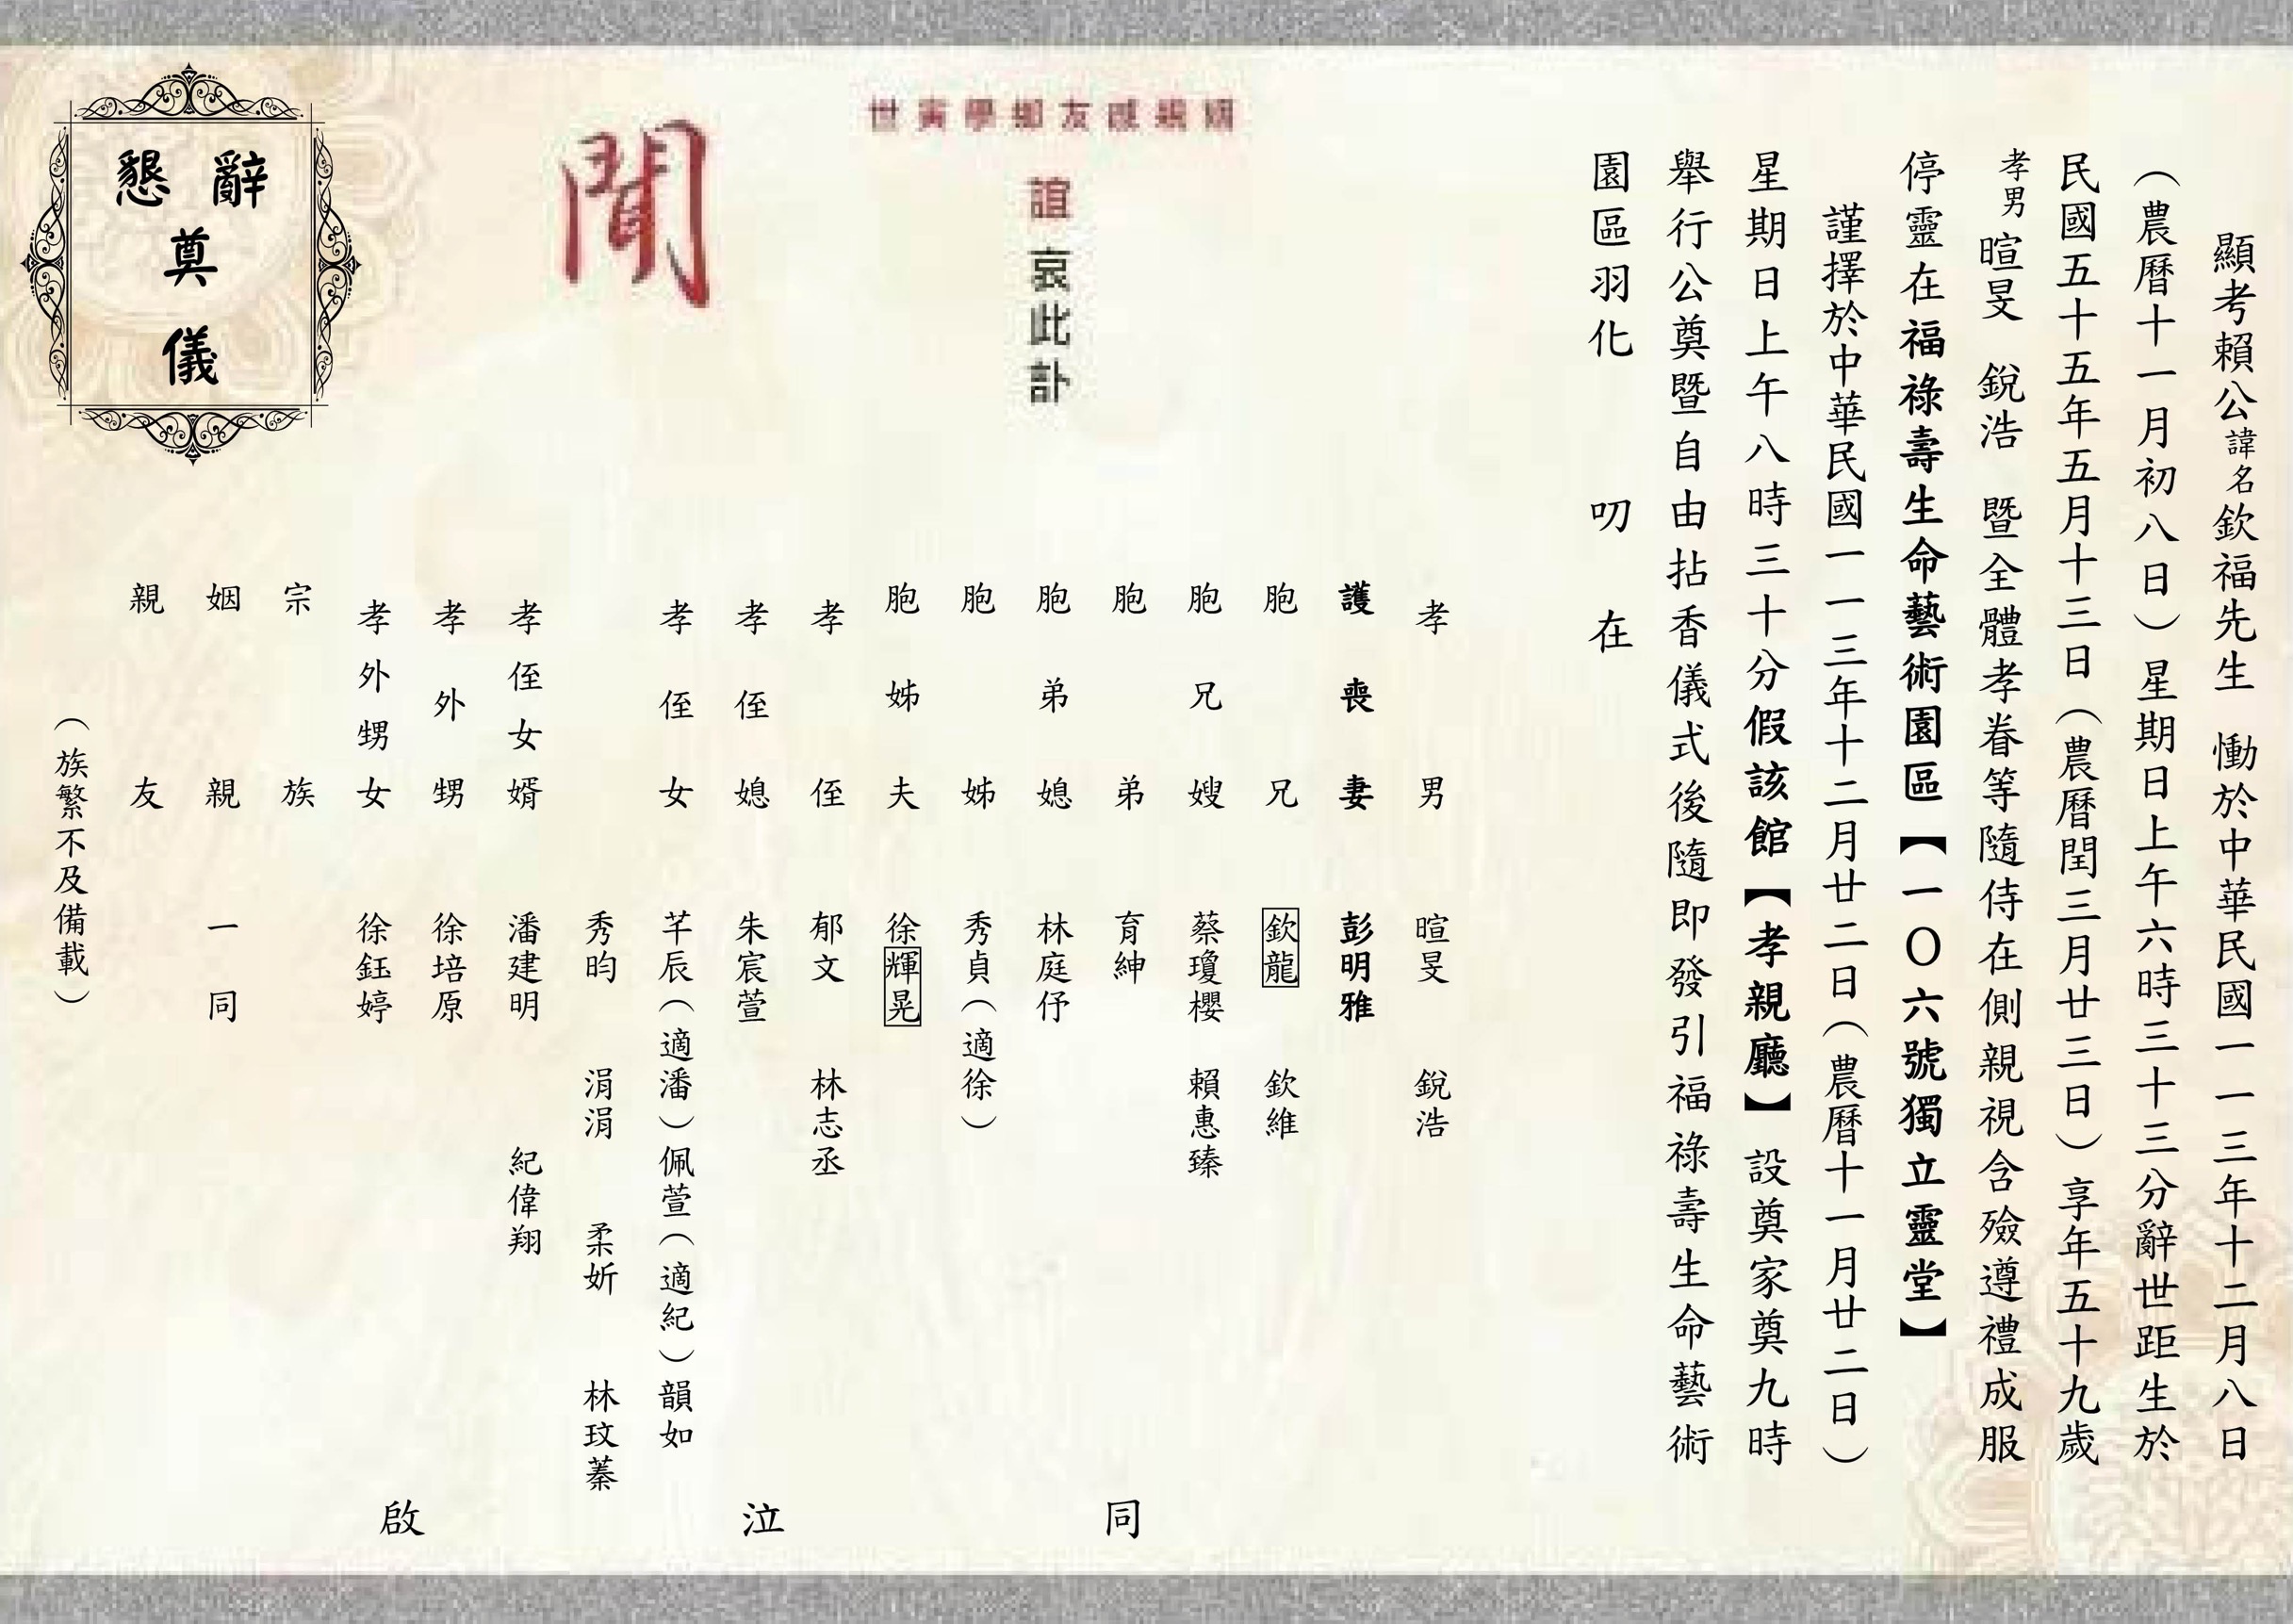 顯考賴公諱名欽福先生　慟於中華民國一一三年十二月八日
（農曆十一月初八日）星期日上午六時三十三分辭世距生於
民國五十五年五月十三日（農曆閏三月廿三日）享年五十九歲
孝男暄旻　銳浩　暨全體孝眷等隨侍在側親視含殮遵禮成服
停靈在福祿壽生命藝術園區【一〇六號獨立靈堂】
謹擇於中華民國一一三年十二月廿二日（農曆十一月廿二日）
星期日上午八時三十分假該館【孝親廳】設奠家奠九時
舉行公奠暨自由拈香儀式後隨即發引福祿壽生命藝術
園區羽化　叨　在
姻親戚友鄉學寅世
誼哀此訃
聞
孝男　暄旻　銳浩
護喪妻　彭明雅
胞兄　欽龍　欽維
胞兄嫂　蔡瓊櫻　賴惠臻
胞弟　育紳
胞弟媳　林庭伃
胞姊　秀貞（適徐）
胞姊夫　徐輝晃
孝侄　郁文　林志丞
孝侄媳　朱宸萱
孝侄女　芊辰（適潘）佩萱（適紀）韻如
秀昀　涓涓　柔妡　林玟蓁
孝侄女婿　潘建明　紀偉翔
孝外甥　徐培原
孝外甥女　徐鈺婷
宗族
姻親　一同
親友
（族繁不及備載）
同　泣　啟
懇辭
奠
儀